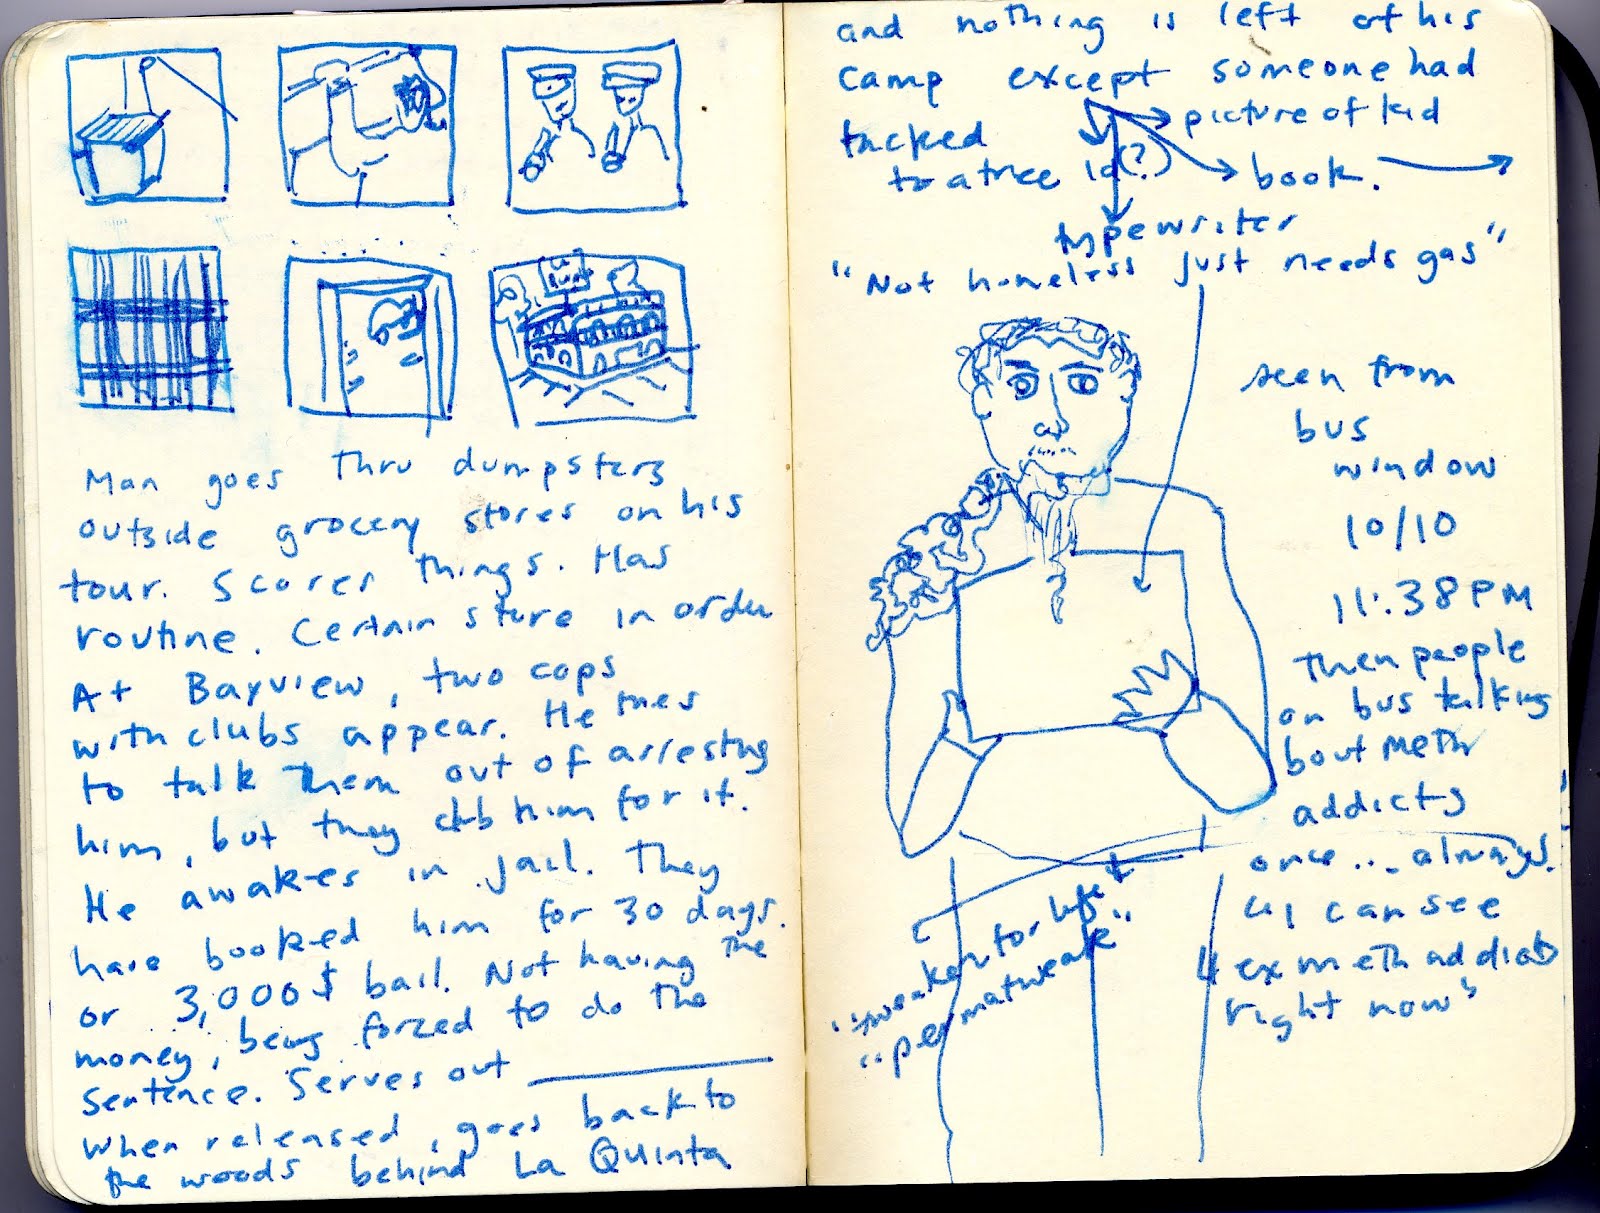 Man goes thru dumpsters
outside grocery stores on his
tour. Scores things. Has
routine. Certain store in order
At Bayview, two cops
with clubs appear. He tries
to talk them out of arresting
him, but they club him for it.
He awakes in jail. They
have booked him for 30 days.
or 3,000$ bail. Not having the
money, being forzed to do the
sentence. Serves out
When released, goes back to
the woods behind La Quinta
and nothing is left of his
camp except someone had
tacked
to a tree
picture of kid
id(?)
book.
typewriter
"Not homeless just needs gas"
seen from
bus
window
10/10
11:38 PM
Then people
on bus talking
bout meth
addicts
once... always.
"I can see
4 ex meth addicts
right now"
"tweaker for life"
"permatweak"